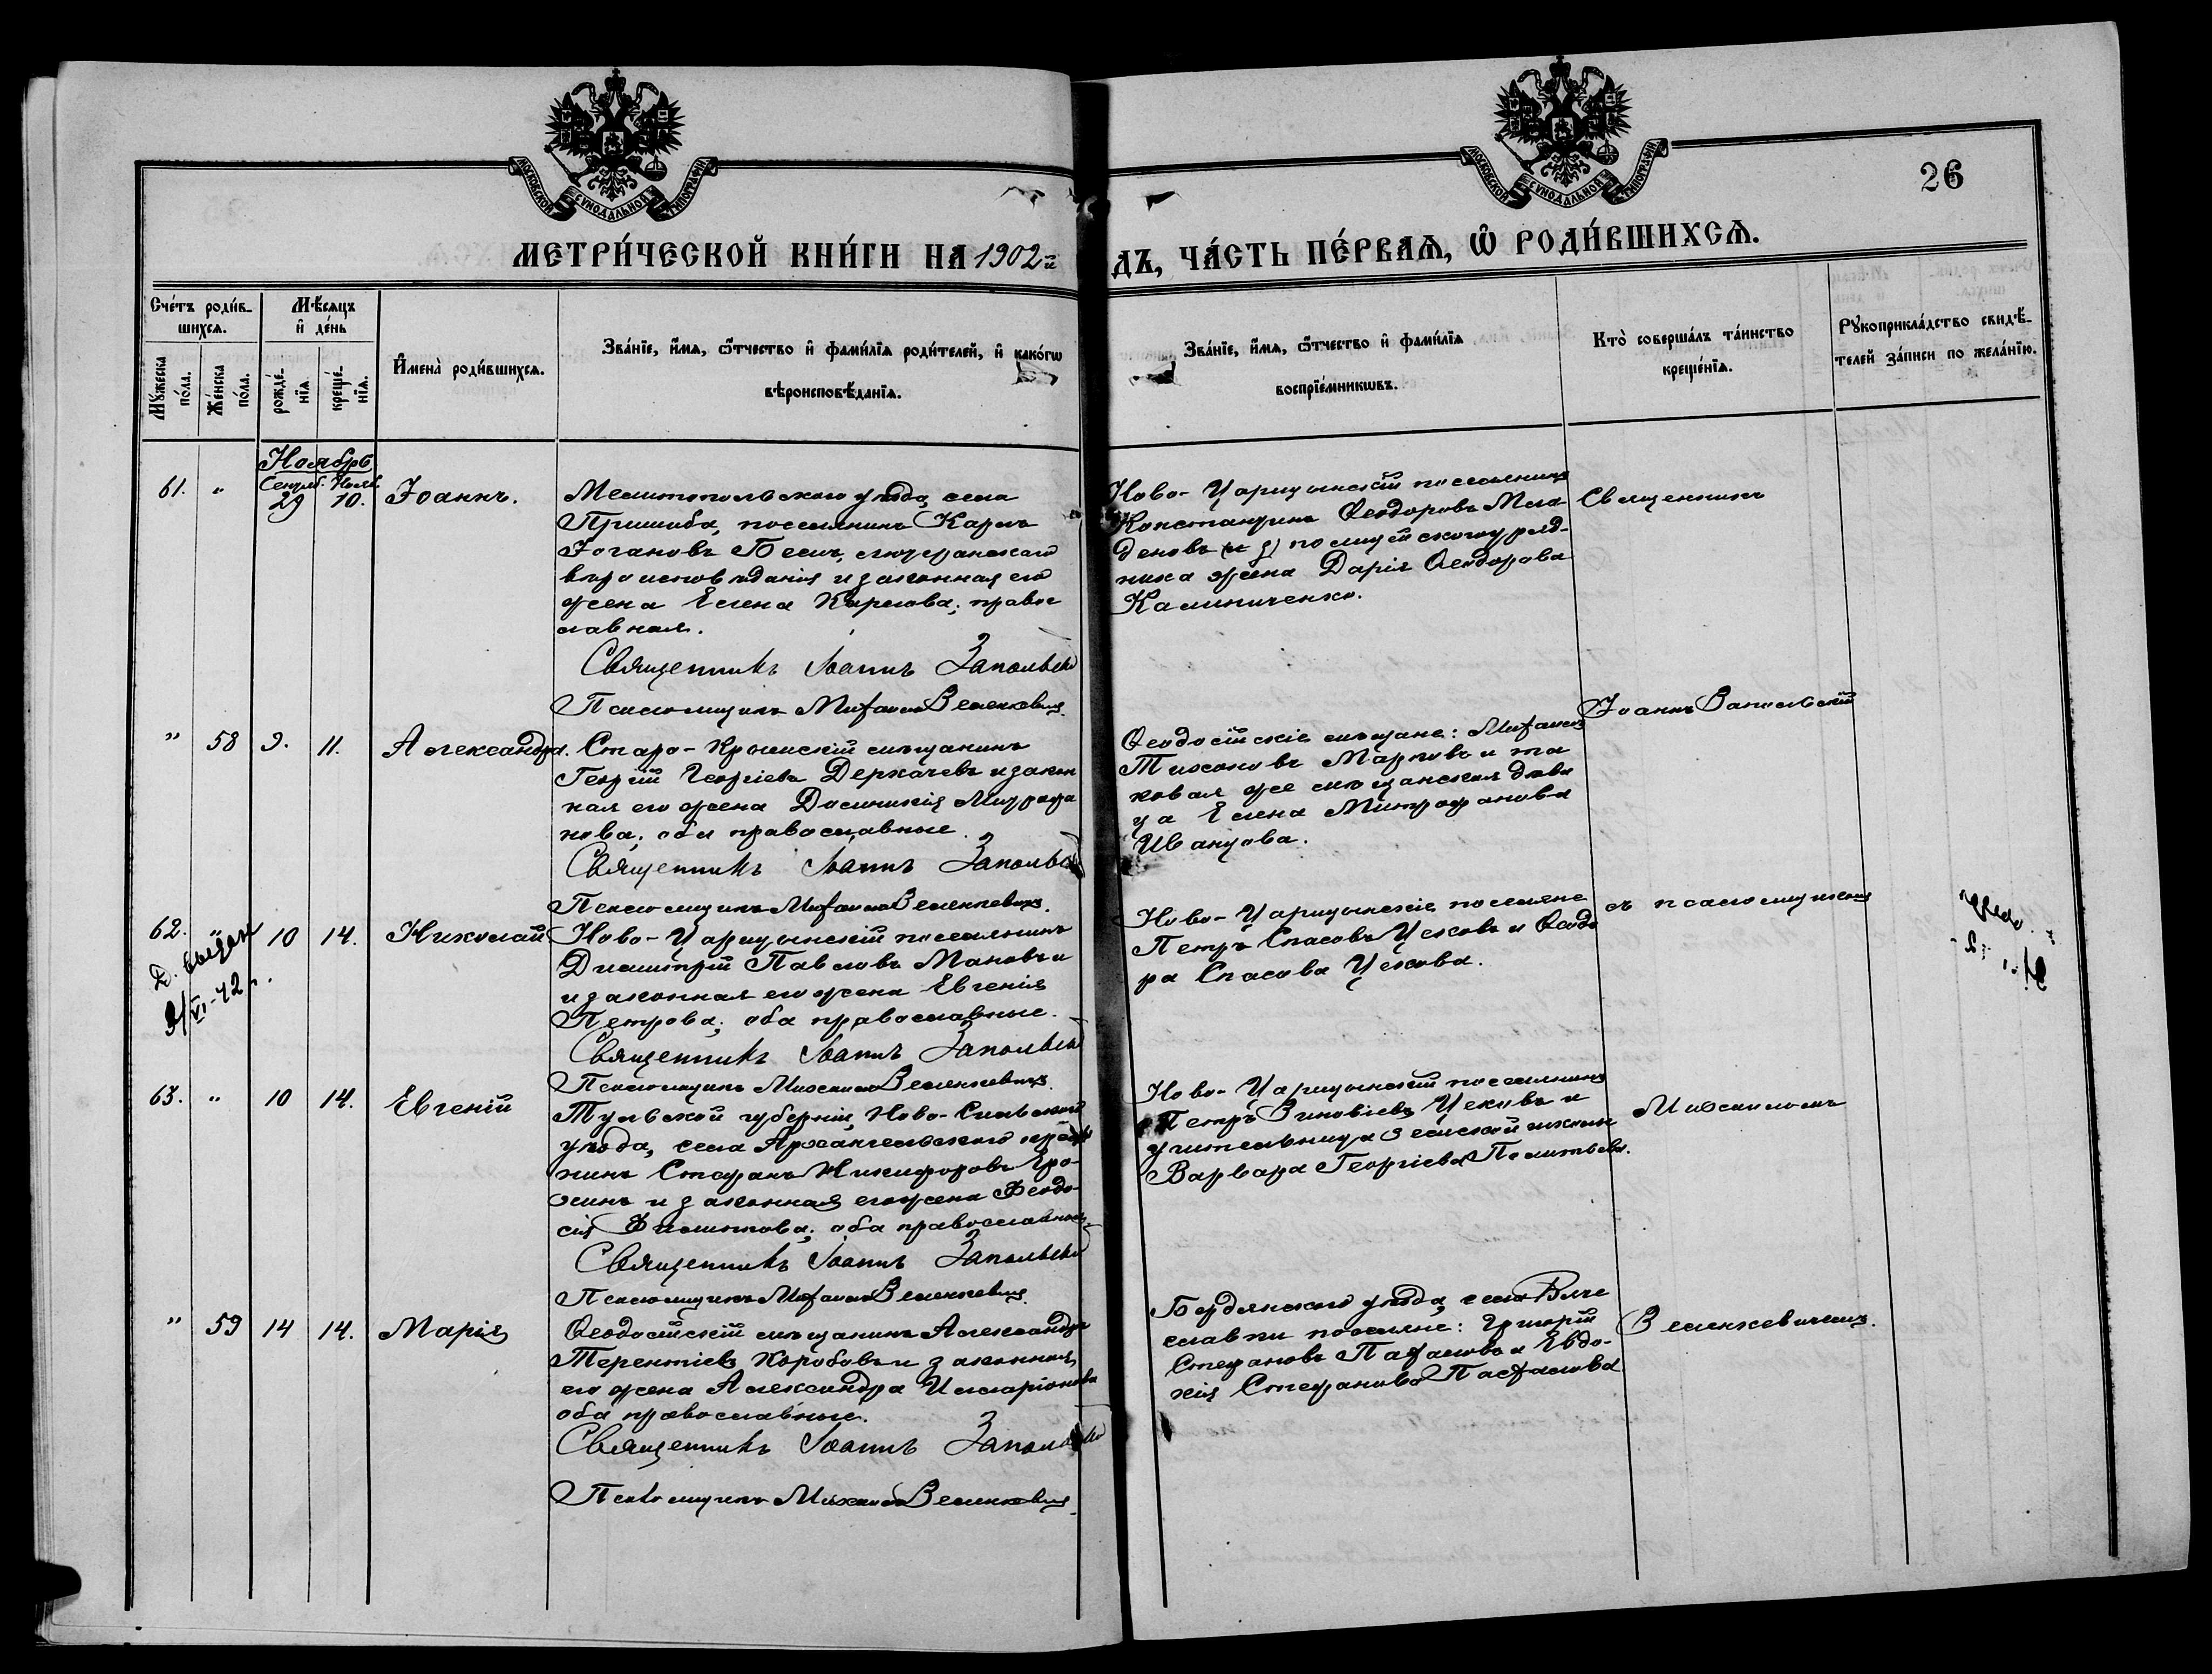 МОСКОВСКОЙ СѴНОДАЛЬНОЙ ТИПОГРАФІИ
МОСКОВСКОЙ СѴНОДАЛЬНОЙ ТИПОГРАФІИ
26
МЕТРИ́ЧЕСКОЙ КНИ́ГИ НА 1902-й
ДЪ, ЧА́СТЬ ПЕ́РВАѦ, Ѡ РОДИ́ВШИХСѦ.
Сче́тъ роди́в-
шихсѧ.
Мѹжеска
по́ла.
Же́нска
по́ла.
Мѣ́сѧцъ
и҆ де́нь
рожде́-
нїѧ.
креще́-
нїѧ.
И҆мена̀ роди́вшихсѧ.
Зва́нїе, и҆́мѧ, ѻ҆́тчество и҆ фами́лїѧ роди́телей, и҆ како́гѡ
вѣроисповѣ́данїѧ.
Зва́нїе, и҆́мѧ, ѻ҆́тчество и҆ фами́лїѧ
воспрїе́мникѡвъ.
Кто̀ соверша́лъ та́инство
креще́нїѧ.
Рѹкоприкла́дство свидѣ́-
телей за́писи по жела́нїю.
Ноябрь
Сентяб. Нояб.
61. " 29 10. Іоаннъ.
Мелитопольскаго уѣзда, села
Пришиба, поселянинъ Карлъ
Іогановъ Бешъ, лютеранскаго
вѣроисповѣданія и законная его
жена Елена Карлова; правос
лавная.
Священникъ Іоаннъ Запольскі
Псаломщикъ Михаилъ Веленкевичъ.
Ново-Царицынскій поселянинъ
Константинъ Ѳеодоровъ Мла
деновъ и полицейскаго уряд-
ника жена Дарія Ѳеодорова
Калиниченко.
Священникъ
" 58 9. 11. Александра.
Старо-Крымскій мѣщанинъ
Георгій Георгіевъ Деркачевъ и закон
ная его жена Досиѳкія Митрофа
нова; оба православные.
Священникъ Іоаннъ Запольскі
Псаломщикъ Михаилъ Веленкевичъ.
Ѳеодосійскіе мѣщане: Михаилъ
Тихоновъ Марковъ и та
ковая же мѣщанская дѣви
ца Елена Митрофанова
Иванцова.
Іоаннъ Запольскій
62. 10 14. Николай
Д. выдан
9/VI-42 г.
Ново-Царицынскій поселянинъ
Димитрій Павловъ Мановъ и
и законная его жена Евгенія
Петрова; оба православные.
Священникъ Іоаннъ Запольскі
Псаломщикъ Михаилъ Веленкевичъ.
Ново-Царицынскіе поселяне
Петръ Спасовъ Цековъ и Ѳеодо
ра Спасова Цекова.
съ псаломщикомъ
63. " 10 14. Евгеній
Тульской губерніи, Ново-Сильскаго
уѣзда, села Архангельскаго крестья
нинъ Стефанъ Никифоровъ Еро-
хинъ и законная его жена Феодо-
сія Филиппова; оба православные.
Священникъ Іоаннъ Запольскі
Псаломщикъ Михаилъ Веленкевичъ
Ново-Царицынскій поселянинъ
Петръ Зиновіевъ Цековъ и
учительница земской школы
Варвара Георгіева
Михаиломъ
" 59 14 14. Марія
Ѳеодосійскій мѣщанинъ Александръ
Терентіевъ Коробовъ и законная
его жена Александра Илларіонова
оба православные.
Священникъ Іоаннъ Запольскі
Псаломщикъ Михаилъ Веленкевичъ.
Бердянскаго уѣзда, села Вяче
славки поселяне: Григорій
Стефановъ Паскаловъ и Евдо-
кія Стефанова Паскалова
Веленкевичемъ.